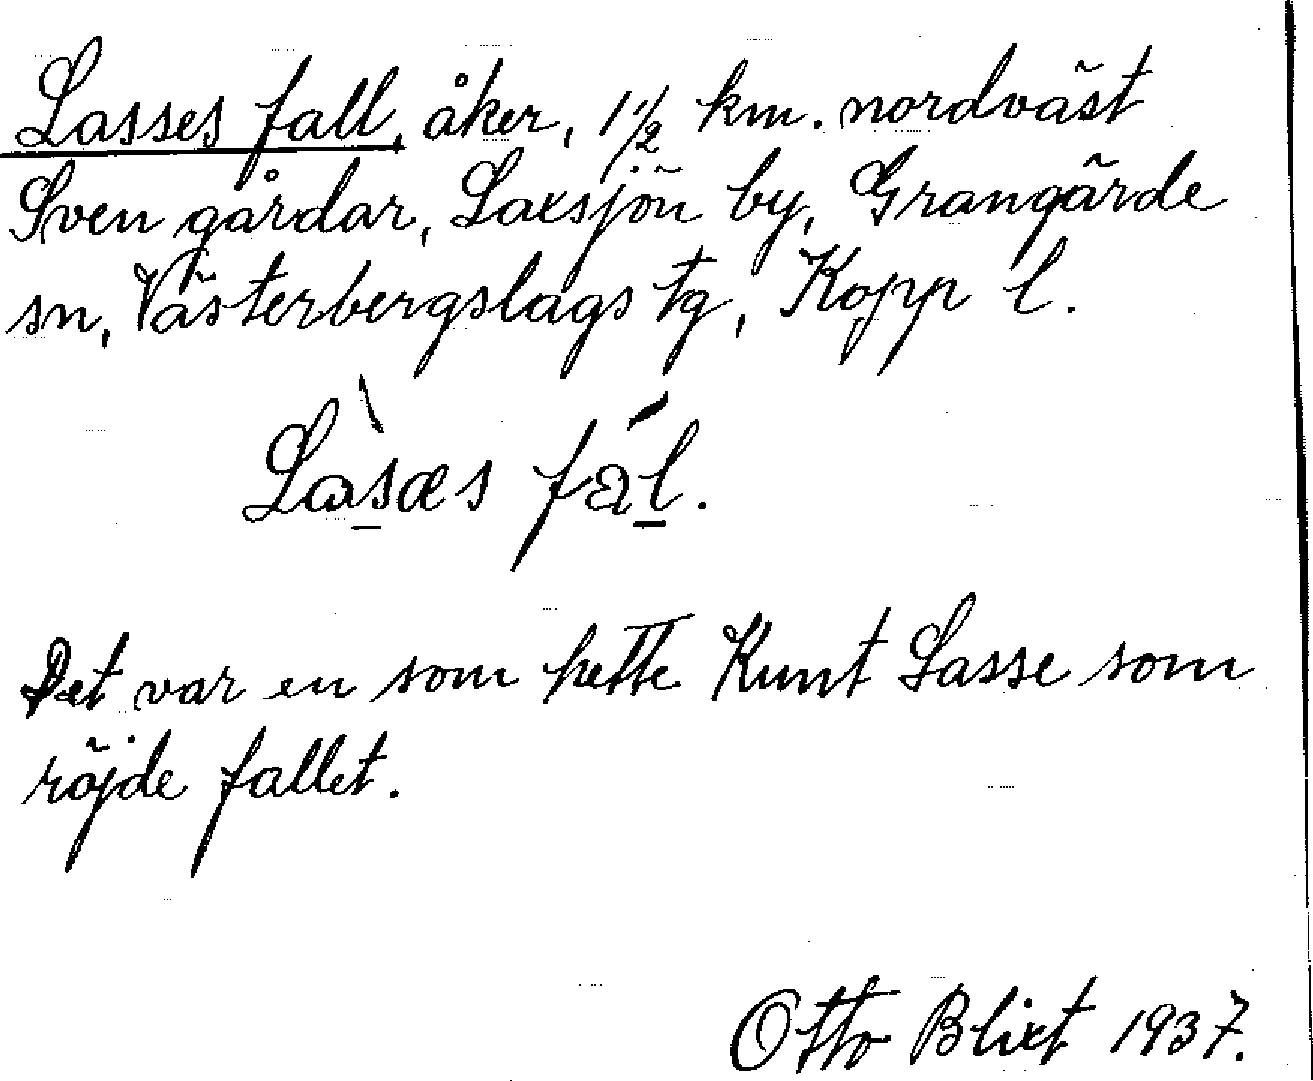 Lasses fall, åker, 1 1/2 km. nordväst
Sven gårdar, Laxsjön by, Grangärde
sn, Västerbergslags tg, Kopp l.
Làsæs fál.
Det var en som hette Kunt Lasse som
röjde fallet.
Otto Blixt 1937.